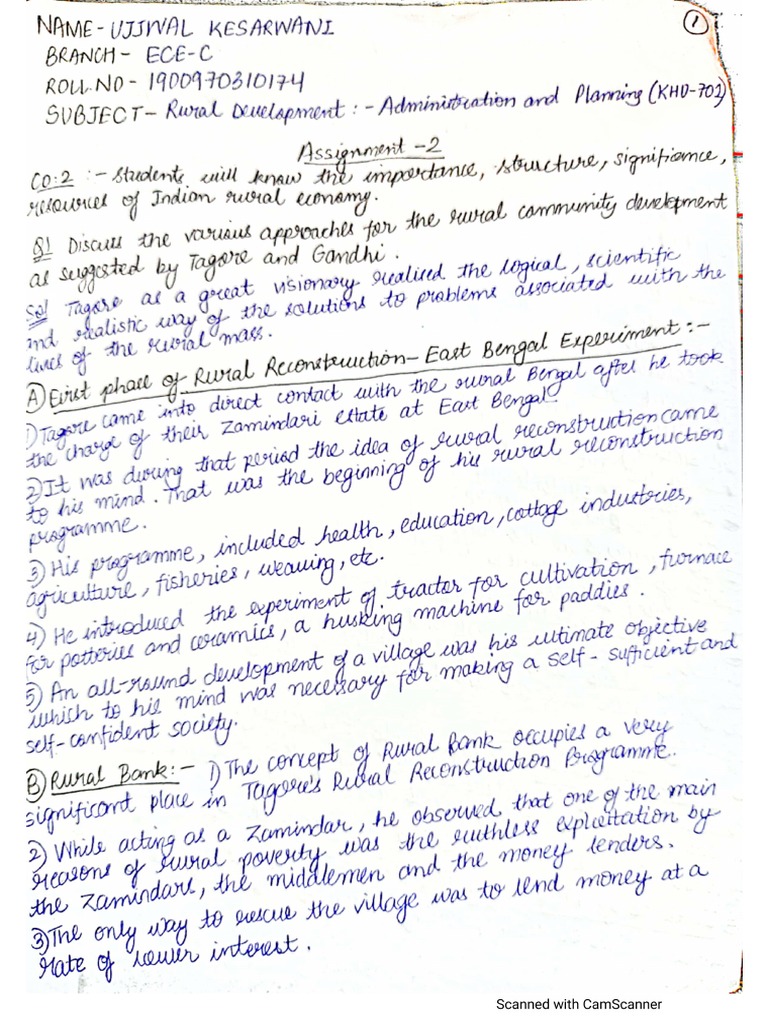 1
NAME - UJJWAL KESARWANI
BRANCH - ECE-C
ROLL.NO - 1900970310174
SUBJECT - Rural Development : - Administration and Planning (KHU-701)
Assignment -2
CO:2 :- Students will know the importance, structure, signifiance,
resources of Indian rural economy.
Q1 Discuss the various approaches for the rural community development
as suggested by Tagore and Gandhi.
Sol Tagore as a great visionary realised the logical, scientific
and realistic way of the solutions to problems associated with the
lives of the rural mass.
A) First phase of Rural Reconstruction - East Bengal Experiment :-
1) Tagore came into direct contact with the rural Bengal after he took
the charge of their Zamindari estate at East Bengal.
2) It was during that period the idea of rural reconstruction came
to his mind. That was the beginning of his rural reconstruction
programme.
3) His programme, included health, education, cottage industries,
agriculture, fisheries, weaving, etc.
4) He introduced the experiment of tractor for cultivation, furnace
for potteries and ceramics, a husking machine for paddies.
5) An all-round development of a village was his ultimate objective
which to his mind was necessary for making a self-sufficient and
self-confident society.
B) Rural Bank:- 1) The concept of Rural Bank occupies a very
significant place in Tagore's Rural Reconstruction Programme.
2) While acting as a Zamindar, he observed that one of the main
reasons of rural poverty was the ruthless exploitation by
the Zamindars, the middlemen and the money lenders.
3) The only way to rescue the village was to lend money at a
rate of lower interest.
Scanned with CamScanner